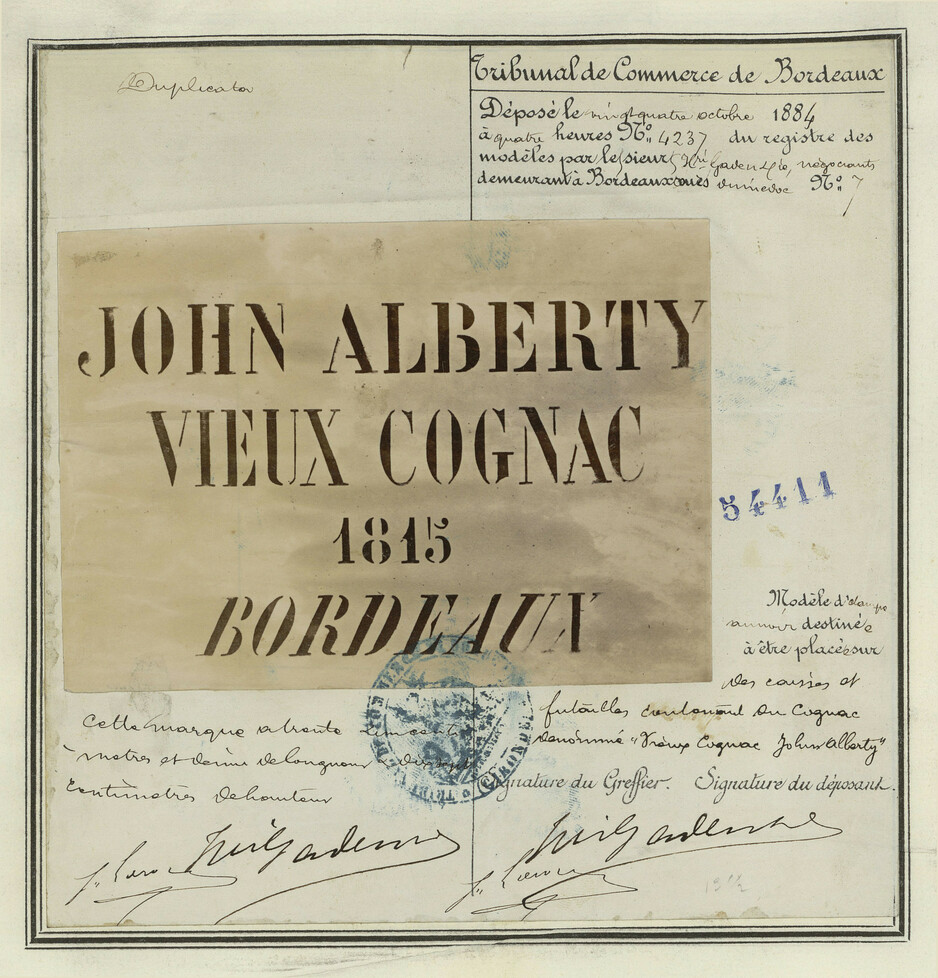 Duplicata
Tribunal de Commerce de Bordeaux
Déposé le vingt quatre octobre 1884
à quatre heures No. 4237 du registre des
modèles par les sieurs Gaden & Cie, négociants
demeurant à Bordeaux No. 7
JOHN ALBERTY
VIEUX COGNAC
1815
BORDEAUX
54411
Modèle d'estampe
au noir destinée
à être placée sur
des caisses et
futailles contenant du Cognac
dénommé "Vieux Cognac John Alberty"
Cette marque a trente cinq centi
mètres et demie de longueur
centimètres de hauteur
Signature du Greffier. Signature du déposant.
GIRONDE